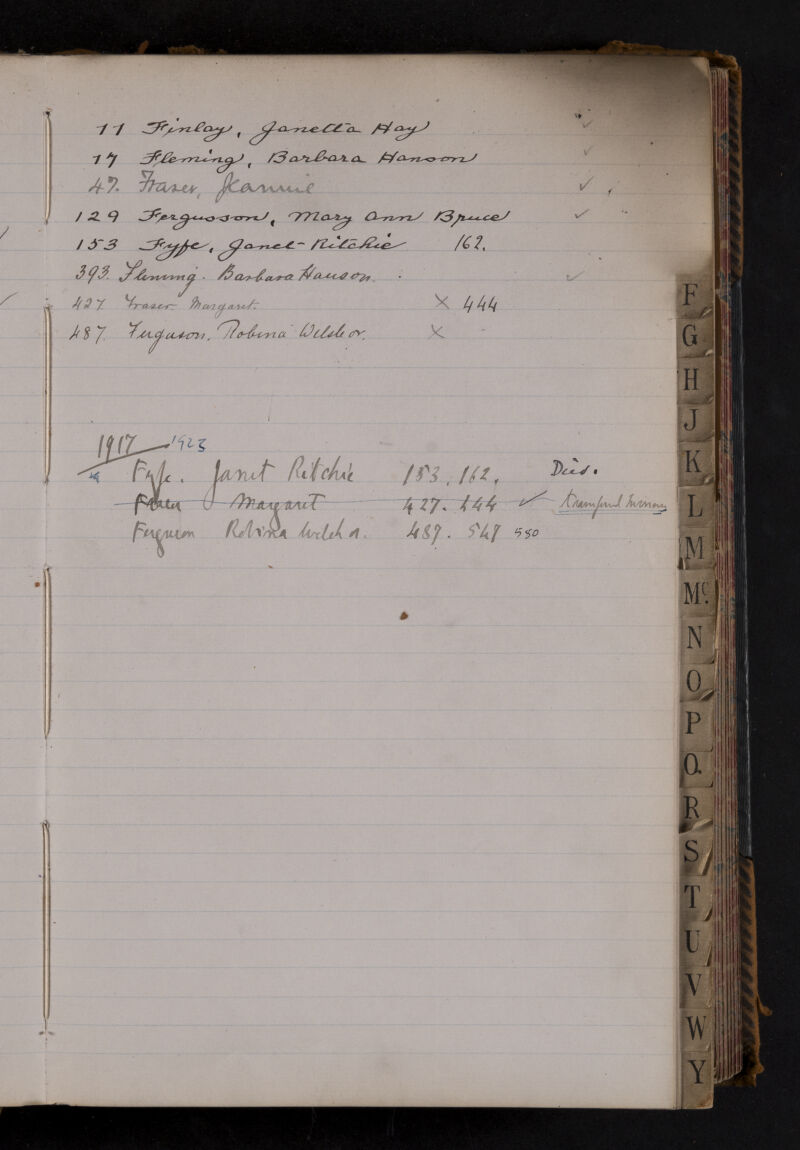 11 Finlay, Janetta Hay ✓
17 Fleming, Barbara Hanson ✓
47. Fraser, Jeannie ✓
129 Fergusson, Mary Ann Bruce ✓
153 Fyfe, Janet Ritchie 162.
393. Fleming. Barbara Hanson. ✓
427 Fraser Margaret. × 444
487. Ferguson. Robina ×
1917 1923
Fyfe. Janet Ritchie 153, 162. Died.
Fraser Margaret 427. 444 ✓
Ferguson Robina 487. 547 580
F
G
H
J
K
L
M
Mc.
N
O
P
Q.
R
S
T
U
V
W
Y